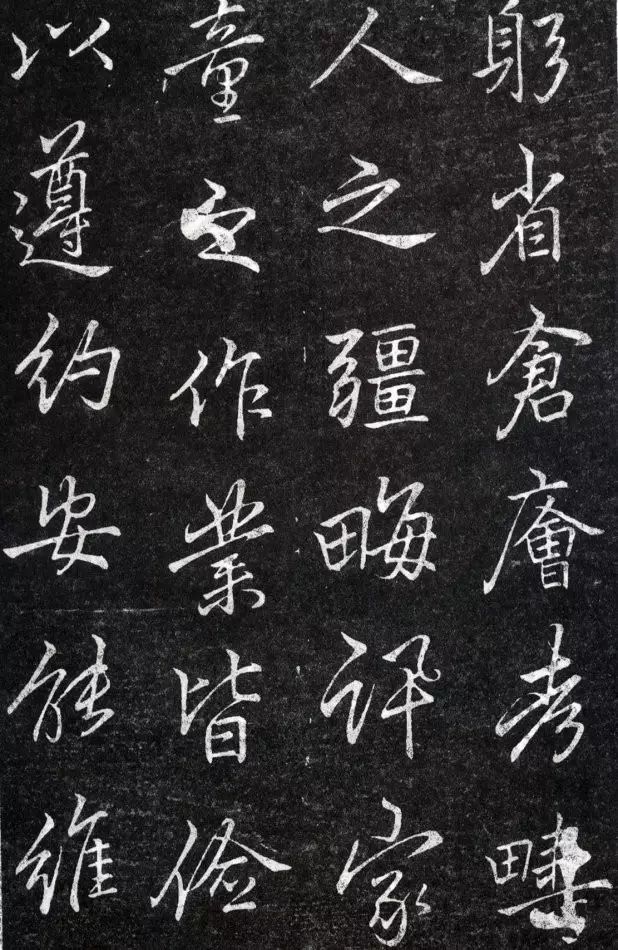 躬省倉廥考疇
人之疆畮訊家
童之作業皆儉
以遵約安能維